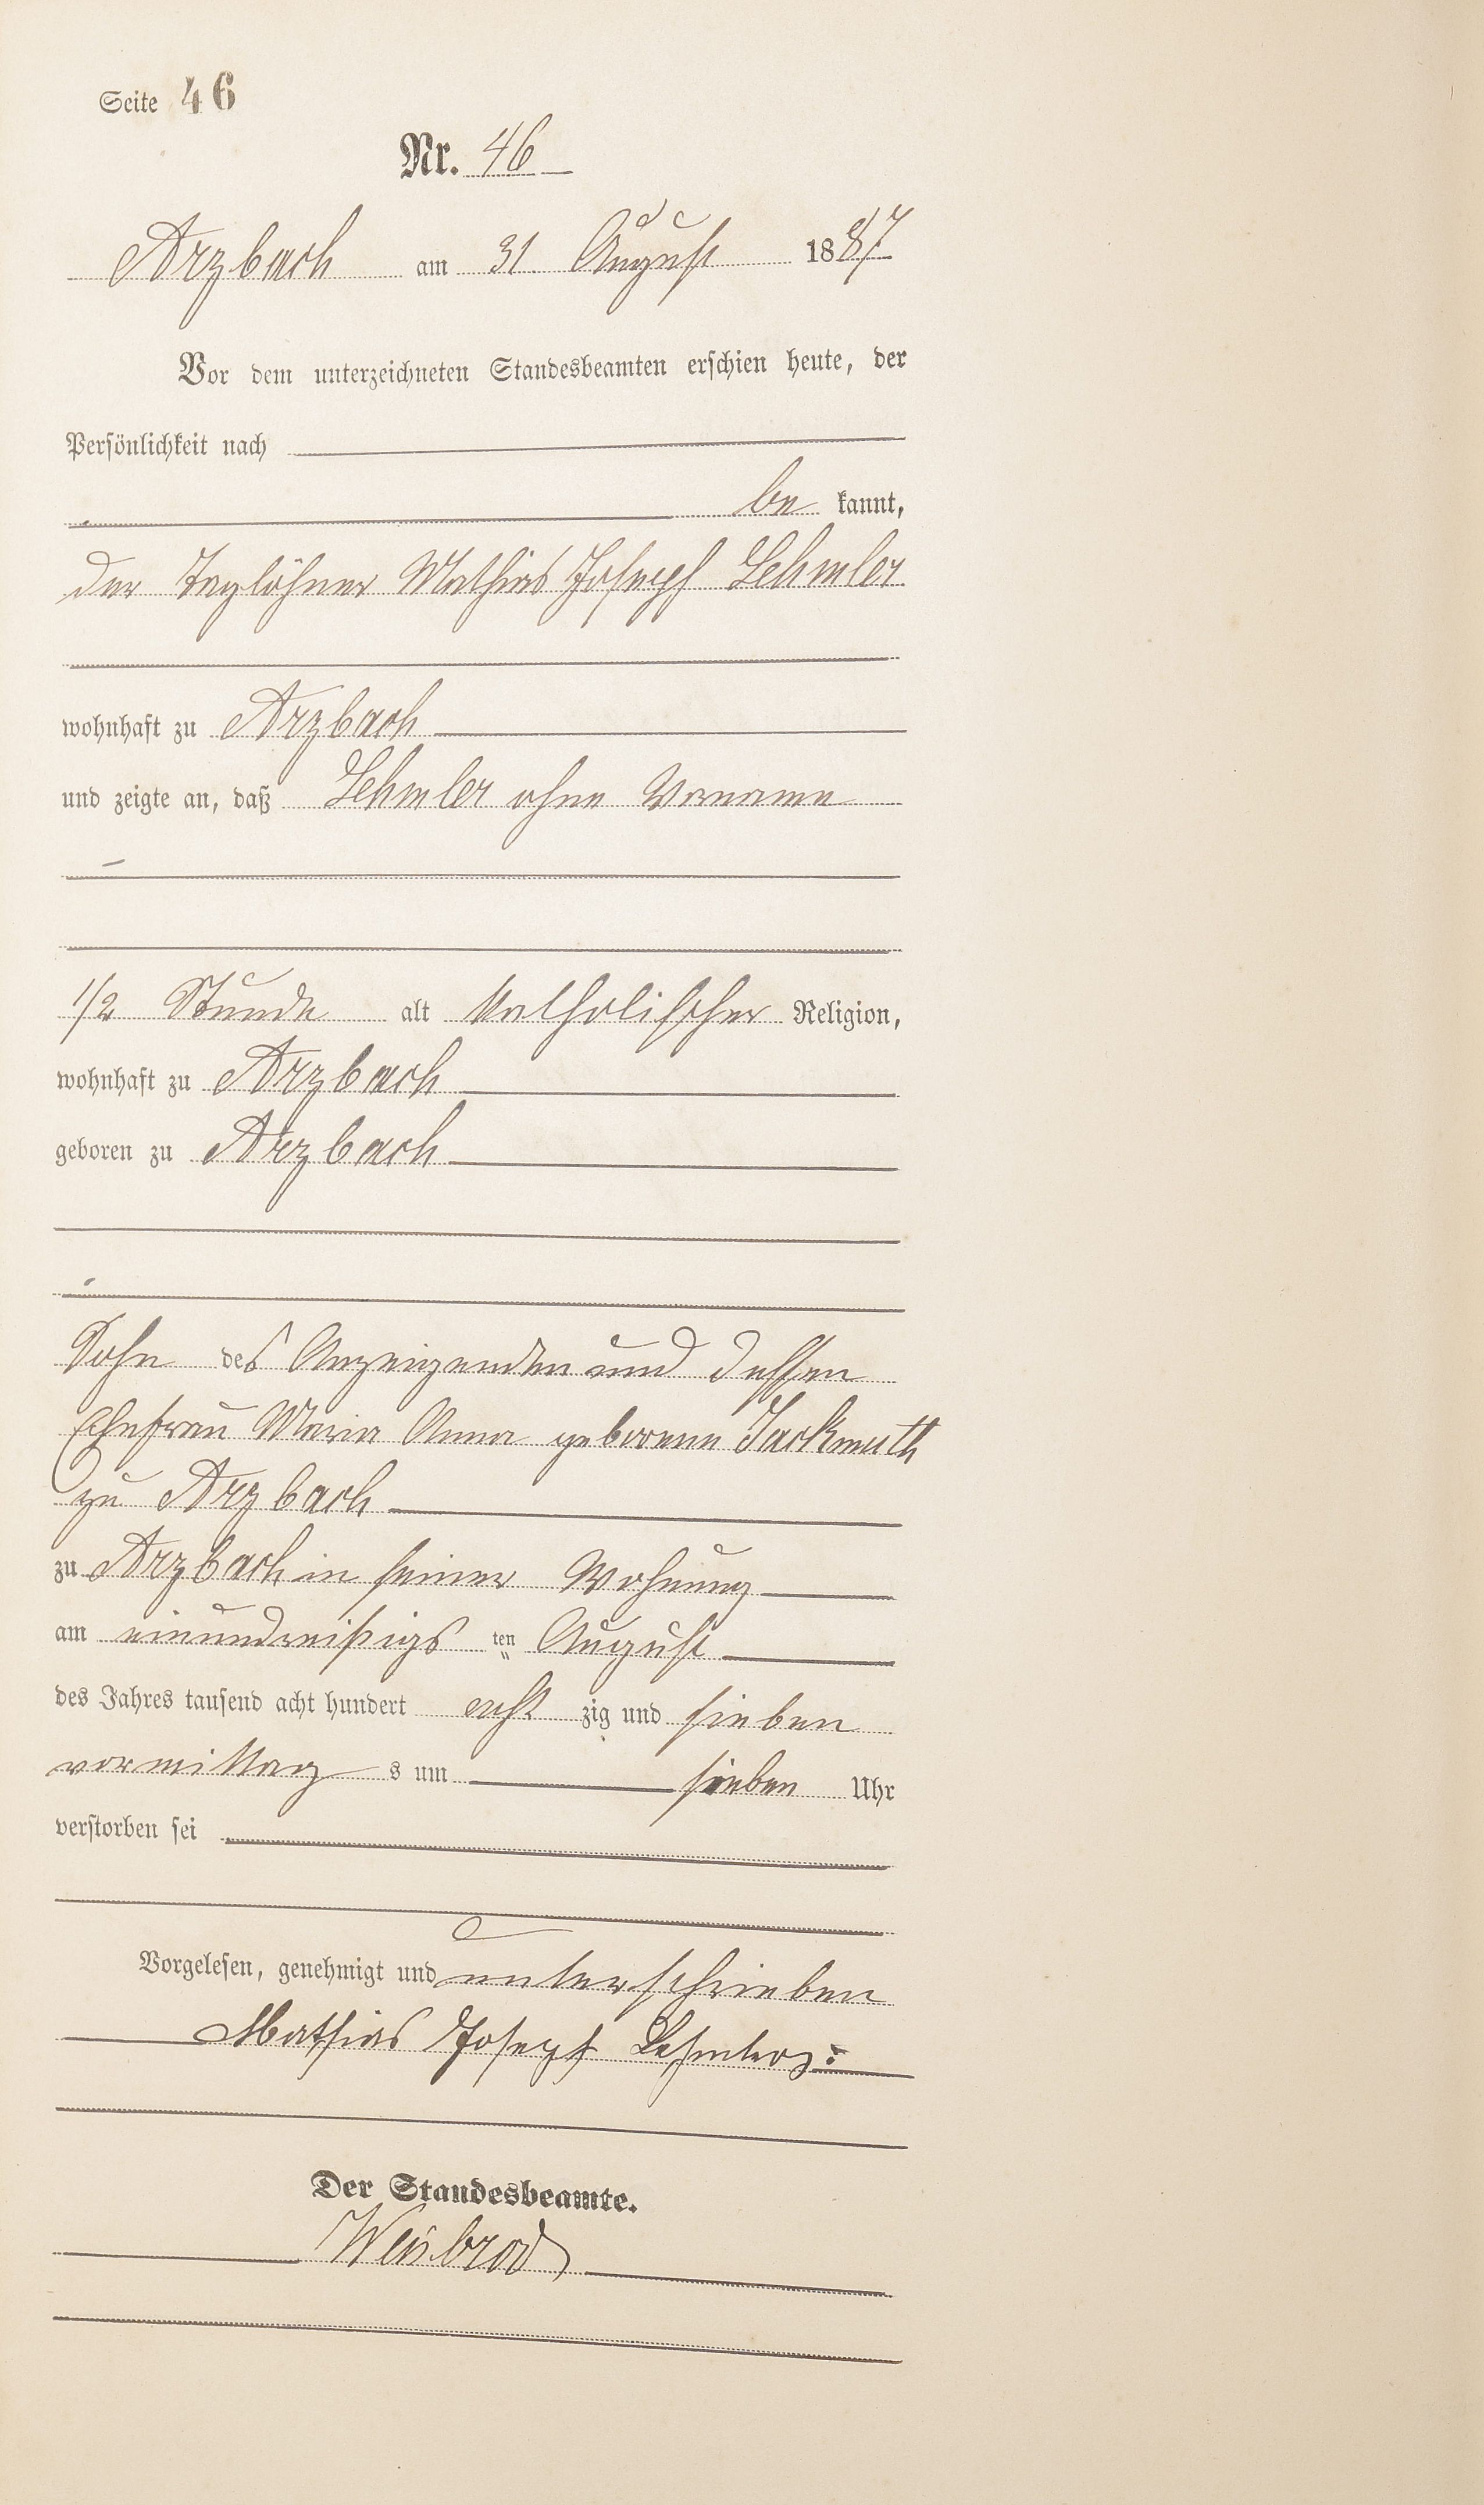 Seite 46
Nr. 46
Arzbach am 31 August 1887
Vor dem unterzeichneten Standesbeamten erschien heute, der
Persönlichkeit nach
be kannt,
der Taglöhner Mathias Joseph Lehmler
wohnhaft zu Arzbach
und zeigte an, daß Lehmler ohne Vorname
1/2 Stunde alt katholischer Religion,
wohnhaft zu Arzbach
geboren zu Arzbach
Sohn des Anzeigenden und dessen
Ehefrau Maria Anna geborene Jackmuth
zu Arzbach
zu Arzbach in seiner Wohnung
am einundreißigs ten August
des Jahres tausend acht hundert acht zig und sieben
vormittag s um sieben Uhr
verstorben sei
Vorgelesen, genehmigt und unterschrieben
Mathias Joseph Lehmler
Der Standesbeamte.
Weisbrod